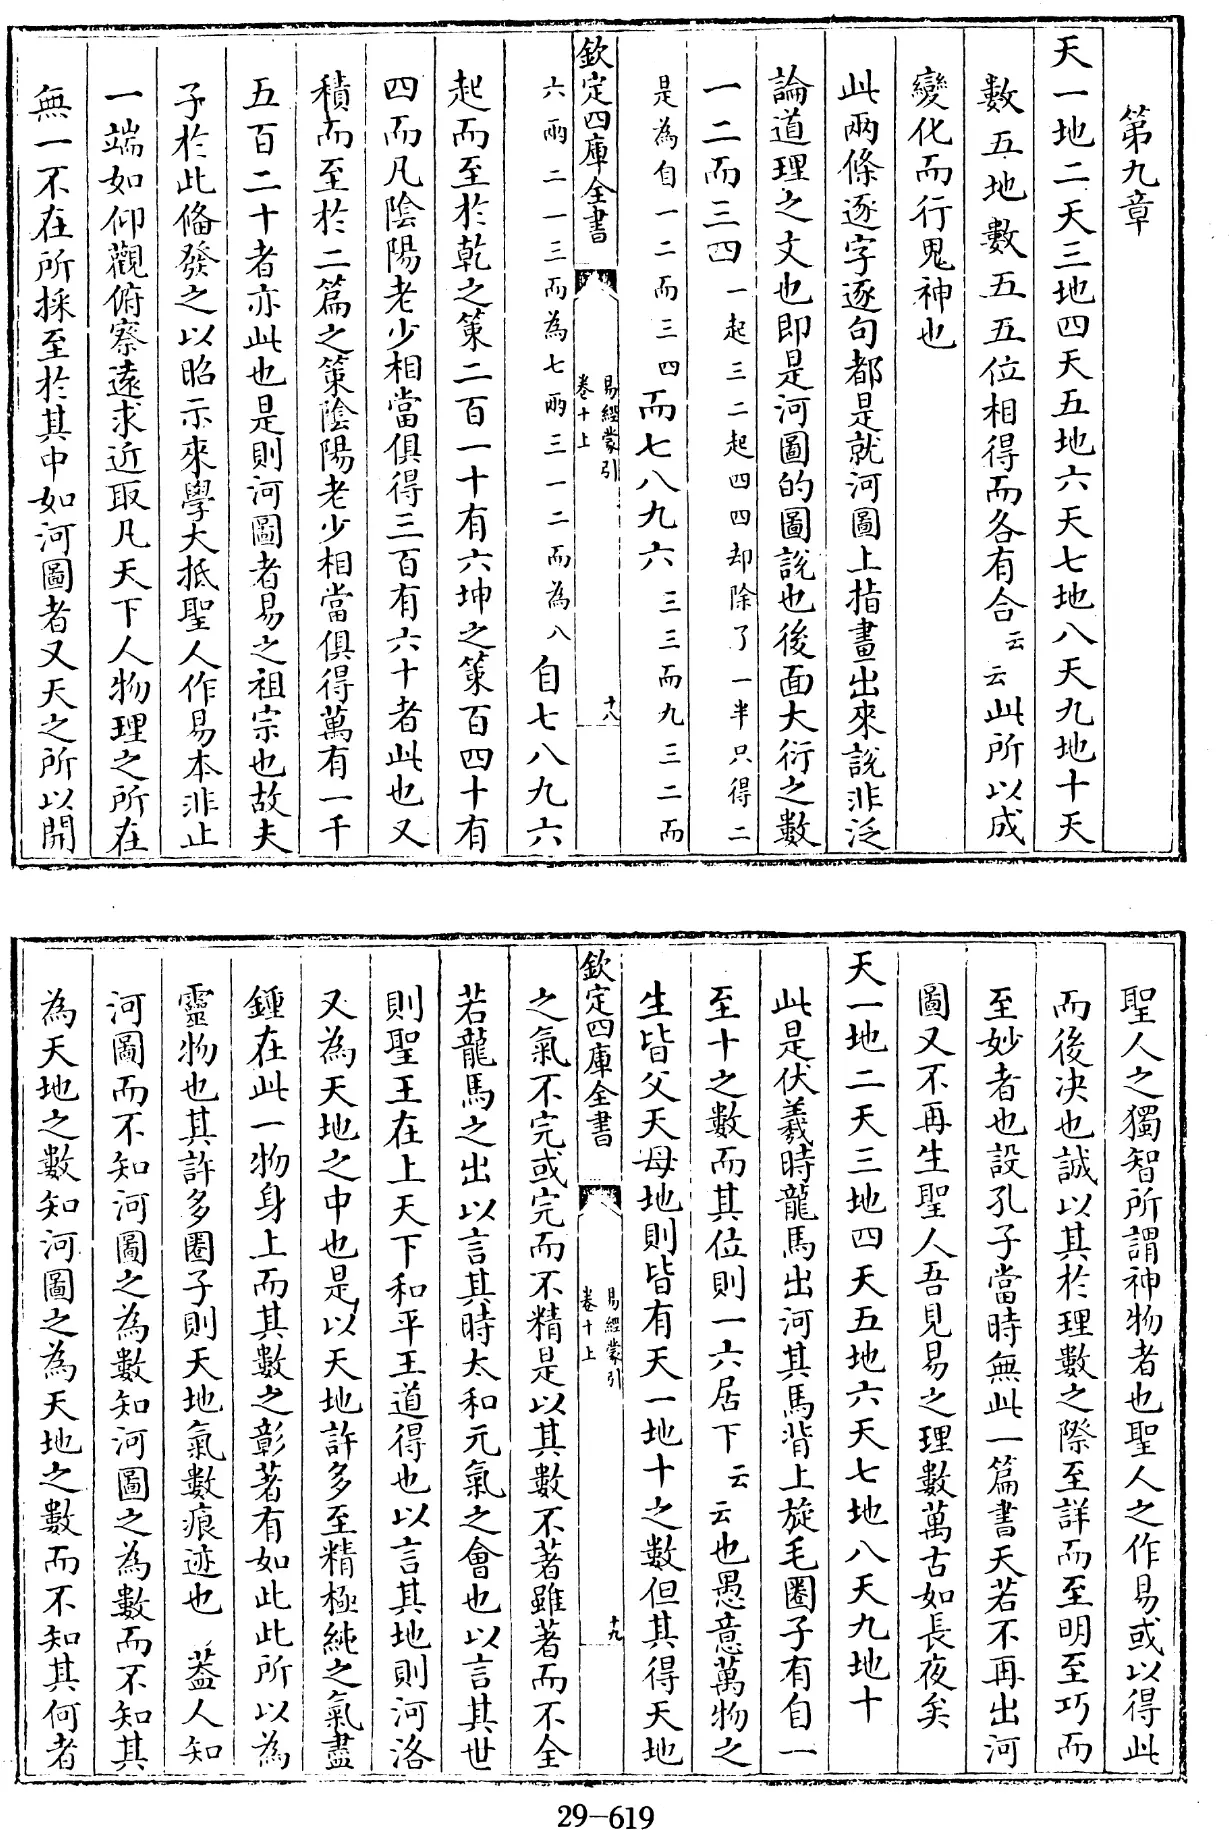 第九章
天一地二天三地四天五地六天七地八天九地十天
數五地數五五位相得而各有合云云此所以成
變化而行鬼神也
此兩條逐字逐句都是就河圖上指畫出來説非泛
論道理之文也即是河圖的圖説也後面大衍之數
一二而三四一起三二起四四却除了一半只得二
是為自一二而三四而七八九六三三而九三二而
欽定四庫全書
易經蒙引
卷十上
十八
六兩二一三而為七兩三一二而為八自七八九六
起而至於乾之策二百一十有六坤之策百四十有
四而凡陰陽老少相當俱得三百有六十者此也又
積而至於二篇之策陰陽老少相當俱得萬有一千
五百二十者亦此也是則河圖者易之祖宗也故夫
子於此偹發之以昭示來學大抵聖人作易本非止
一端如仰觀俯察遠求近取凡天下人物理之所在
無一不在所採至於其中如河圖者又天之所以開
聖人之獨智所謂神物者也聖人之作易或以得此
而後决也誠以其於理數之際至詳而至明至巧而
至妙者也設孔子當時無此一篇書天若不再出河
圖又不再生聖人吾見易之理數萬古如長夜矣
天一地二天三地四天五地六天七地八天九地十
此是伏羲時龍馬出河其馬背上旋毛圈子有自一
至十之數而其位則一六居下云云也愚意萬物之
生皆父天母地則皆有天一地十之數但其得天地
欽定四庫全書
易經蒙引
卷十上
十九
之氣不完或完而不精是以其數不著雖著而不全
若龍馬之出以言其時太和元氣之會也以言其世
則聖王在上天下和平王道得也以言其地則河洛
又為天地之中也是以天地許多至精極純之氣盡
鍾在此一物身上而其數之彰著有如此此所以為
靈物也其許多圈子則天地氣數痕迹也 葢人知
河圖而不知河圖之為數知河圖之為數而不知其
為天地之數知河圖之為天地之數而不知其何者
29-619